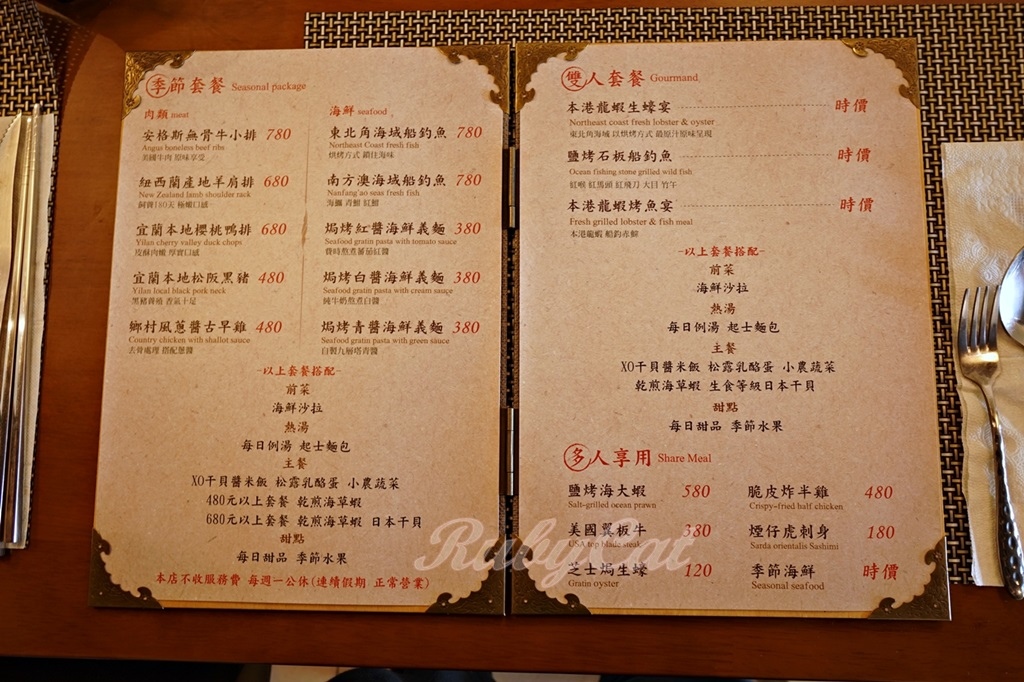 季節套餐 Seasonal package
肉類 meat
安格斯無骨牛小排 780
Angus boneless beef ribs
美國牛肉 原味享受
紐西蘭產地羊肩排 680
New Zealand lamb shoulder rack
飼養180天 極嫩口感
宜蘭本地櫻桃鴨排 680
Yilan cherry valley duck chops
皮酥肉嫩 厚實口感
宜蘭本地松阪黑豬 480
Yilan local black pork neck
黑豬飼養 香氣十足
鄉村風蔥醬古早雞 480
Country chicken with shallot sauce
去骨處理 搭配蔥醬
海鮮 seafood
東北角海域船釣魚 780
Northeast Coast fresh fish
烘烤方式 鎖住海味
南方澳海域船釣魚 780
Nanfang'ao seas fresh fish
海鱺 青鯧 紅鯧
焗烤紅醬海鮮義麵 380
Seafood gratin pasta with tomato sauce
費時熬煮蕃茄紅醬
焗烤白醬海鮮義麵 380
Seafood gratin pasta with cream sauce
純牛奶熬煮白醬
焗烤青醬海鮮義麵 380
Seafood gratin pasta with green sauce
自製九層塔青醬
-以上套餐搭配-
前菜
海鮮沙拉
熱湯
每日例湯 起士麵包
主餐
XO干貝醬米飯 松露乳酪蛋 小農蔬菜
480元以上套餐 乾煎海草蝦
680元以上套餐 乾煎海草蝦 日本干貝
甜點
每日甜品 季節水果
本店不收服務費 每週一公休(連續假期 正常營業)
雙人套餐 Gourmand
本港龍蝦生蠔宴 時價
Northeast coast fresh lobster & oyster
東北角海域 以烘烤方式 最原汁原味呈現
鹽烤石板船釣魚 時價
Ocean fishing stone grilled wild fish
紅喉 紅馬頭 紅飛刀 大目 竹午
本港龍蝦烤魚宴 時價
Fresh grilled lobster & fish meal
本港龍蝦 船釣赤鯮
-以上套餐搭配-
前菜
海鮮沙拉
熱湯
每日例湯 起士麵包
主餐
XO干貝醬米飯 松露乳酪蛋 小農蔬菜
乾煎海草蝦 生食等級日本干貝
甜點
每日甜品 季節水果
多人享用 Share Meal
鹽烤海大蝦 580
Salt-grilled ocean prawn
美國翼板牛 380
USA top blade steak
芝士焗生蠔 120
Gratin oyster
脆皮炸半雞 480
Crispy-fried half chicken
煙仔虎刺身 180
Sarda orientalis Sashimi
季節海鮮 時價
Seasonal seafood
RubyCat